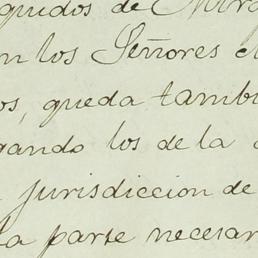 guidos de
n los Señores
os, queda tambi
gando los de la
jurisdiccion de
a parte necesar